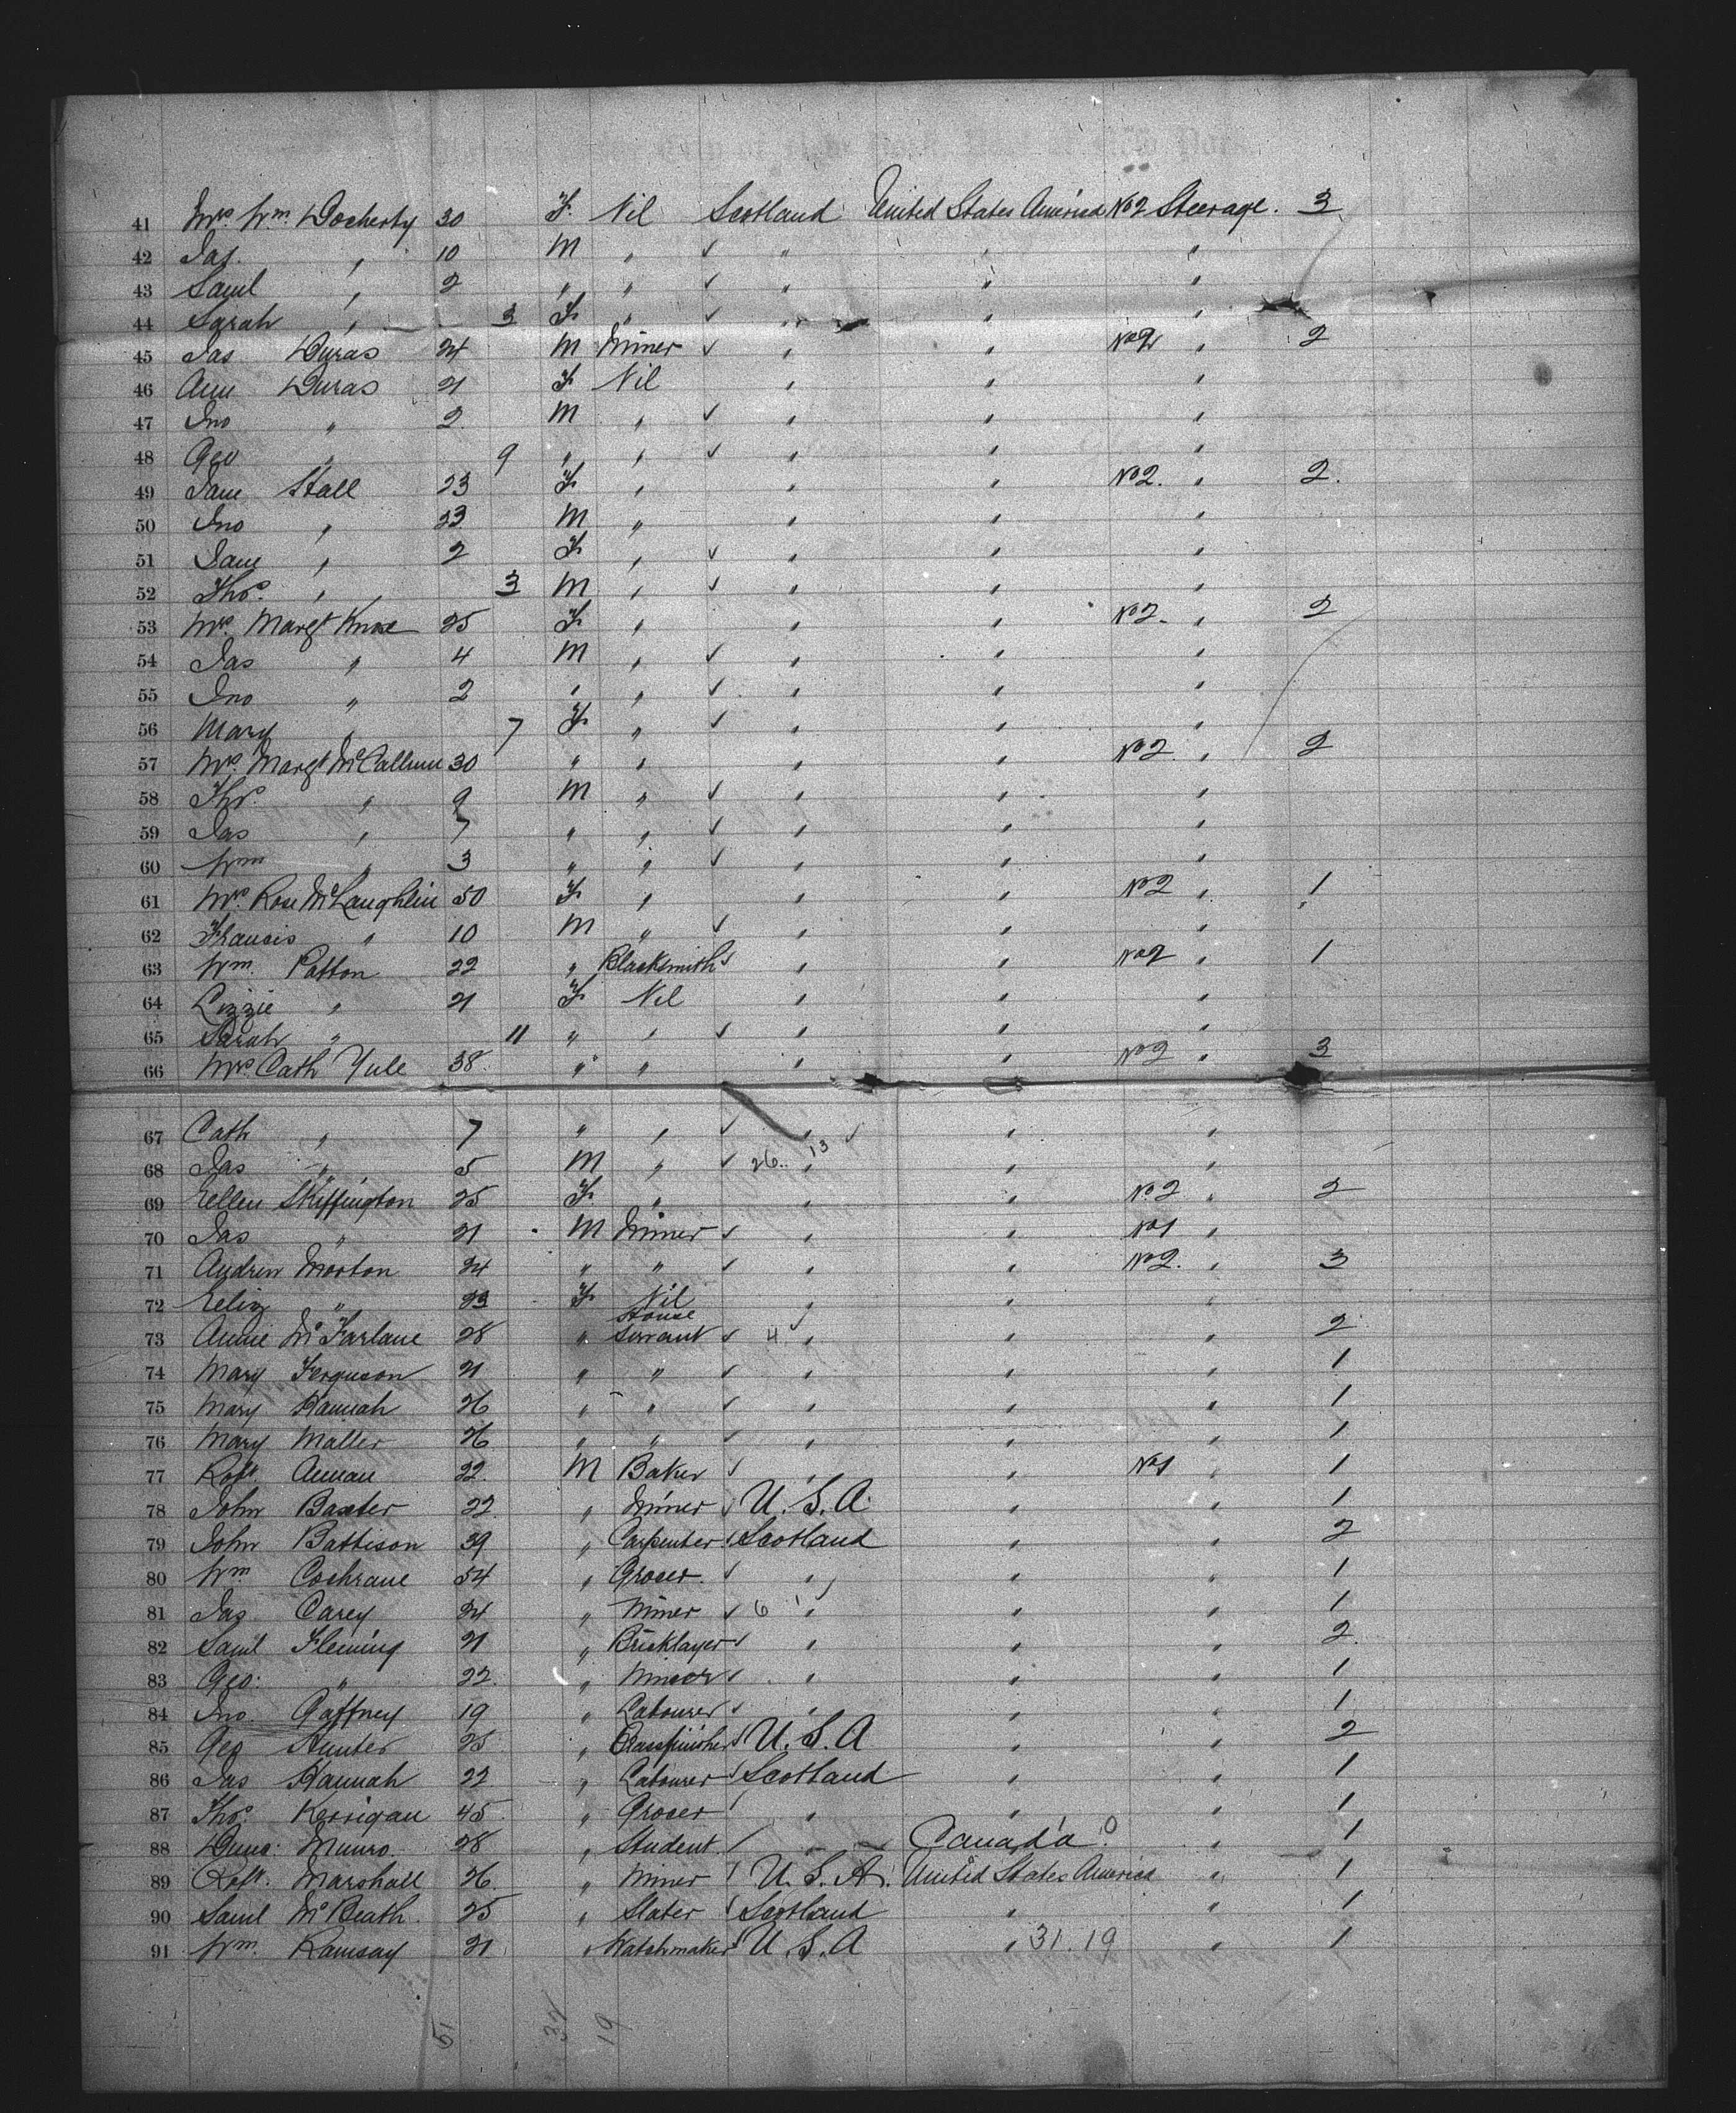 41 Mrs. Wm. Docherty 30 F. Nil Scotland United States America No 2 Steerage. 3
42 Jas. " 10 M " ✓ " " "
43 Saml " 2 " " ✓ " " "
44 Sarah " 3 F " ✓ " " "
45 Jas Duras 24 M Miner ✓ " " No 2 " 2
46 Ann Duras 21 F Nil " " "
47 Jno " 2 M " ✓ " " "
48 Geo " 9 " " ✓ " " "
49 Jane Stall 23 F " " " No 2. " 2.
50 Jno " 23 M " " " "
51 Jane " 2 F " ✓ " " "
52 Thos. " 3 M " ✓ " " "
53 Mrs. Margt Knox 25 F " " " No 2. " 2
54 Jas " 4 M " ✓ " " "
55 Jno " 2 " " ✓ " " "
56 Mary " 7 F " ✓ " " "
57 Mrs. Margt McCallum 30 " " " " No 2. " 2
58 Thos. " 9 M " ✓ " " "
59 Jas " 7 " " ✓ " " "
60 Wm " 3 " " ✓ " " "
61 Mrs. Rose McLaughlin 50 F " " " No 2 " 1
62 Francis " 10 M " ✓ " " "
63 Wm. Patton 22 " Blacksmith ✓ " " No 2 " 1
64 Lizzie " 21 F Nil " " "
65 Sarah " 11 " " ✓ " " "
66 Mrs. Cath Yule 38. " " " " No 2 " 3
67 Cath " 7 " " ✓ " ✓ " "
68 Jas " 5 M " ✓ 26.. 13 " " "
69 Ellen Skiffington 25 F " " " No. 2 " 2
70 Jas " 21 M Miner ✓ " " No 1 "
71 Andrew Morton 24 " " ✓ " " No 2. " 3
72 Eliz " 23 F Nil " " "
73 Annie McFarlane 28 " House Servant ✓ 4 " " " 2
74 Mary Ferguson 21 " " ✓ " " " 1
75 Mary Hannah 26 " " ✓ " " " 1
76 Mary Miller 26 " " ✓ " " " 1
77 Robt. Annan 22 M Baker ✓ " " No 1 " 1
78 John Baxter 22. " Miner ✓ U. S. A. " " 1
79 John Battison 39 " Carpenter ✓ Scotland " " 2
80 Wm Cochrane 54 " Grocer. ✓ " " " 1
81 Jas Carey 24 " Miner ✓ 6 1 " " " 1
82 Saml Fleming 21 " Bricklayer ✓ " " " 2.
83 Geo: " 22. " Minor ✓ " " " 1
84 Jno. Gaffney 19 " Labourer ✓ " " " 1
85 Geo Hunter 25 " Brassfinisher ✓ U. S. A " " 2
86 Jas Hannah 22. " Labourer ✓ Scotland " " 1
87 Thos Kerrigan 45. " Grocer " " " 1
88 Dunc. Munro. 28 " Student. " Canada. " 1
89 Robt. Marshall 26. " Miner U. S. A. United States America " 1
90 Saml McBeath. 25 " Slater Scotland " " 1
91 Wm. Ramsay 21 " Watchmaker U. S. A " 31. 19 " 1
51 32 19